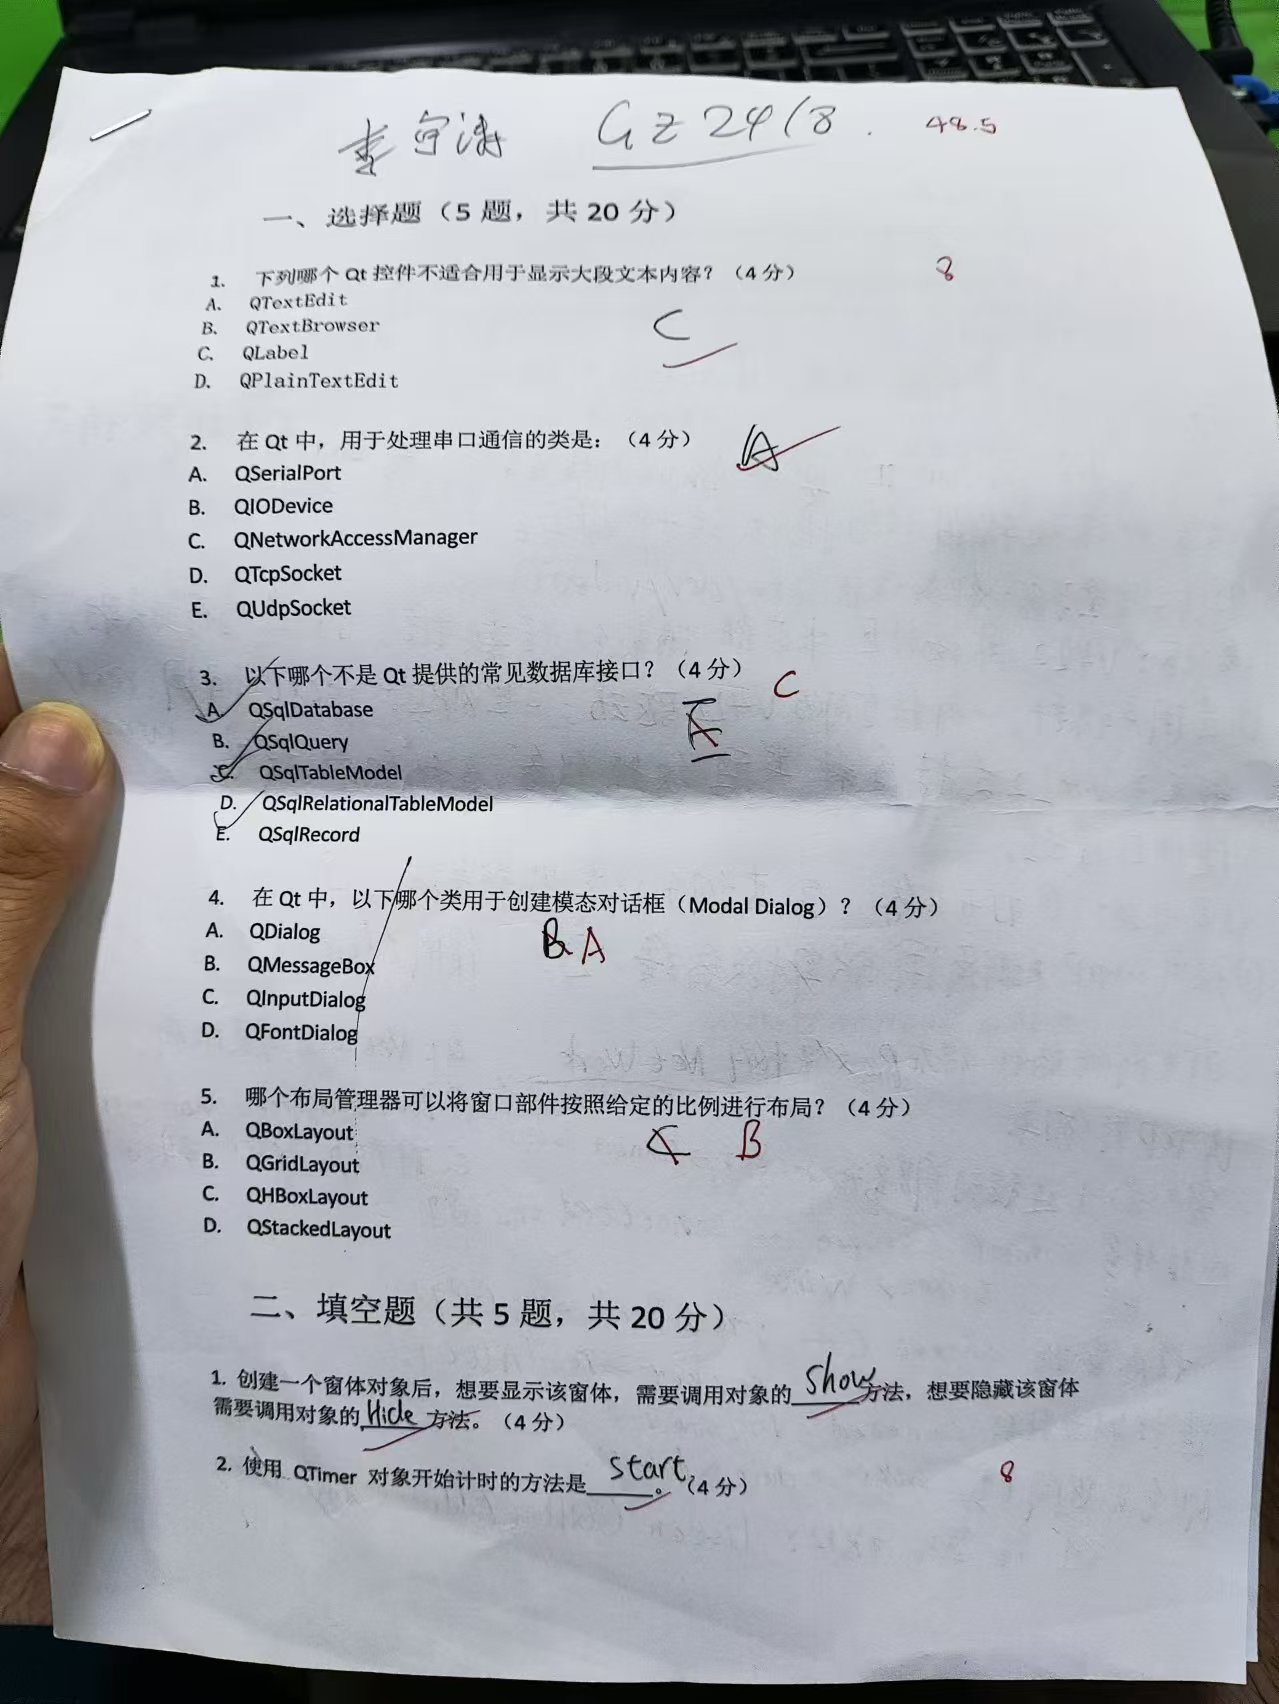 李宇涛 GZ2418. 48.5
一、选择题（5 题，共 20 分）
1. 下列哪个 Qt 控件不适合用于显示大段文本内容？（4 分） 8
A. QTextEdit
B. QTextBrowser C
C. QLabel
D. QPlainTextEdit
2. 在 Qt 中，用于处理串口通信的类是：（4 分） A
A. QSerialPort
B. QIODevice
C. QNetworkAccessManager
D. QTcpSocket
E. QUdpSocket
3. 以下哪个不是 Qt 提供的常见数据库接口？（4 分） C
A. QSqlDatabase
B. QSqlQuery
C. QSqlTableModel
D. QSqlRelationalTableModel
E. QSqlRecord
4. 在 Qt 中，以下哪个类用于创建模态对话框（Modal Dialog）？（4 分）
A. QDialog B A
B. QMessageBox
C. QInputDialog
D. QFontDialog
5. 哪个布局管理器可以将窗口部件按照给定的比例进行布局？（4 分）
A. QBoxLayout C B
B. QGridLayout
C. QHBoxLayout
D. QStackedLayout
二、填空题（共 5 题，共 20 分）
1. 创建一个窗体对象后，想要显示该窗体，需要调用对象的 show 方法，想要隐藏该窗体
需要调用对象的 Hide 方法。（4 分）
2. 使用 QTimer 对象开始计时的方法是 start 。（4 分） 8